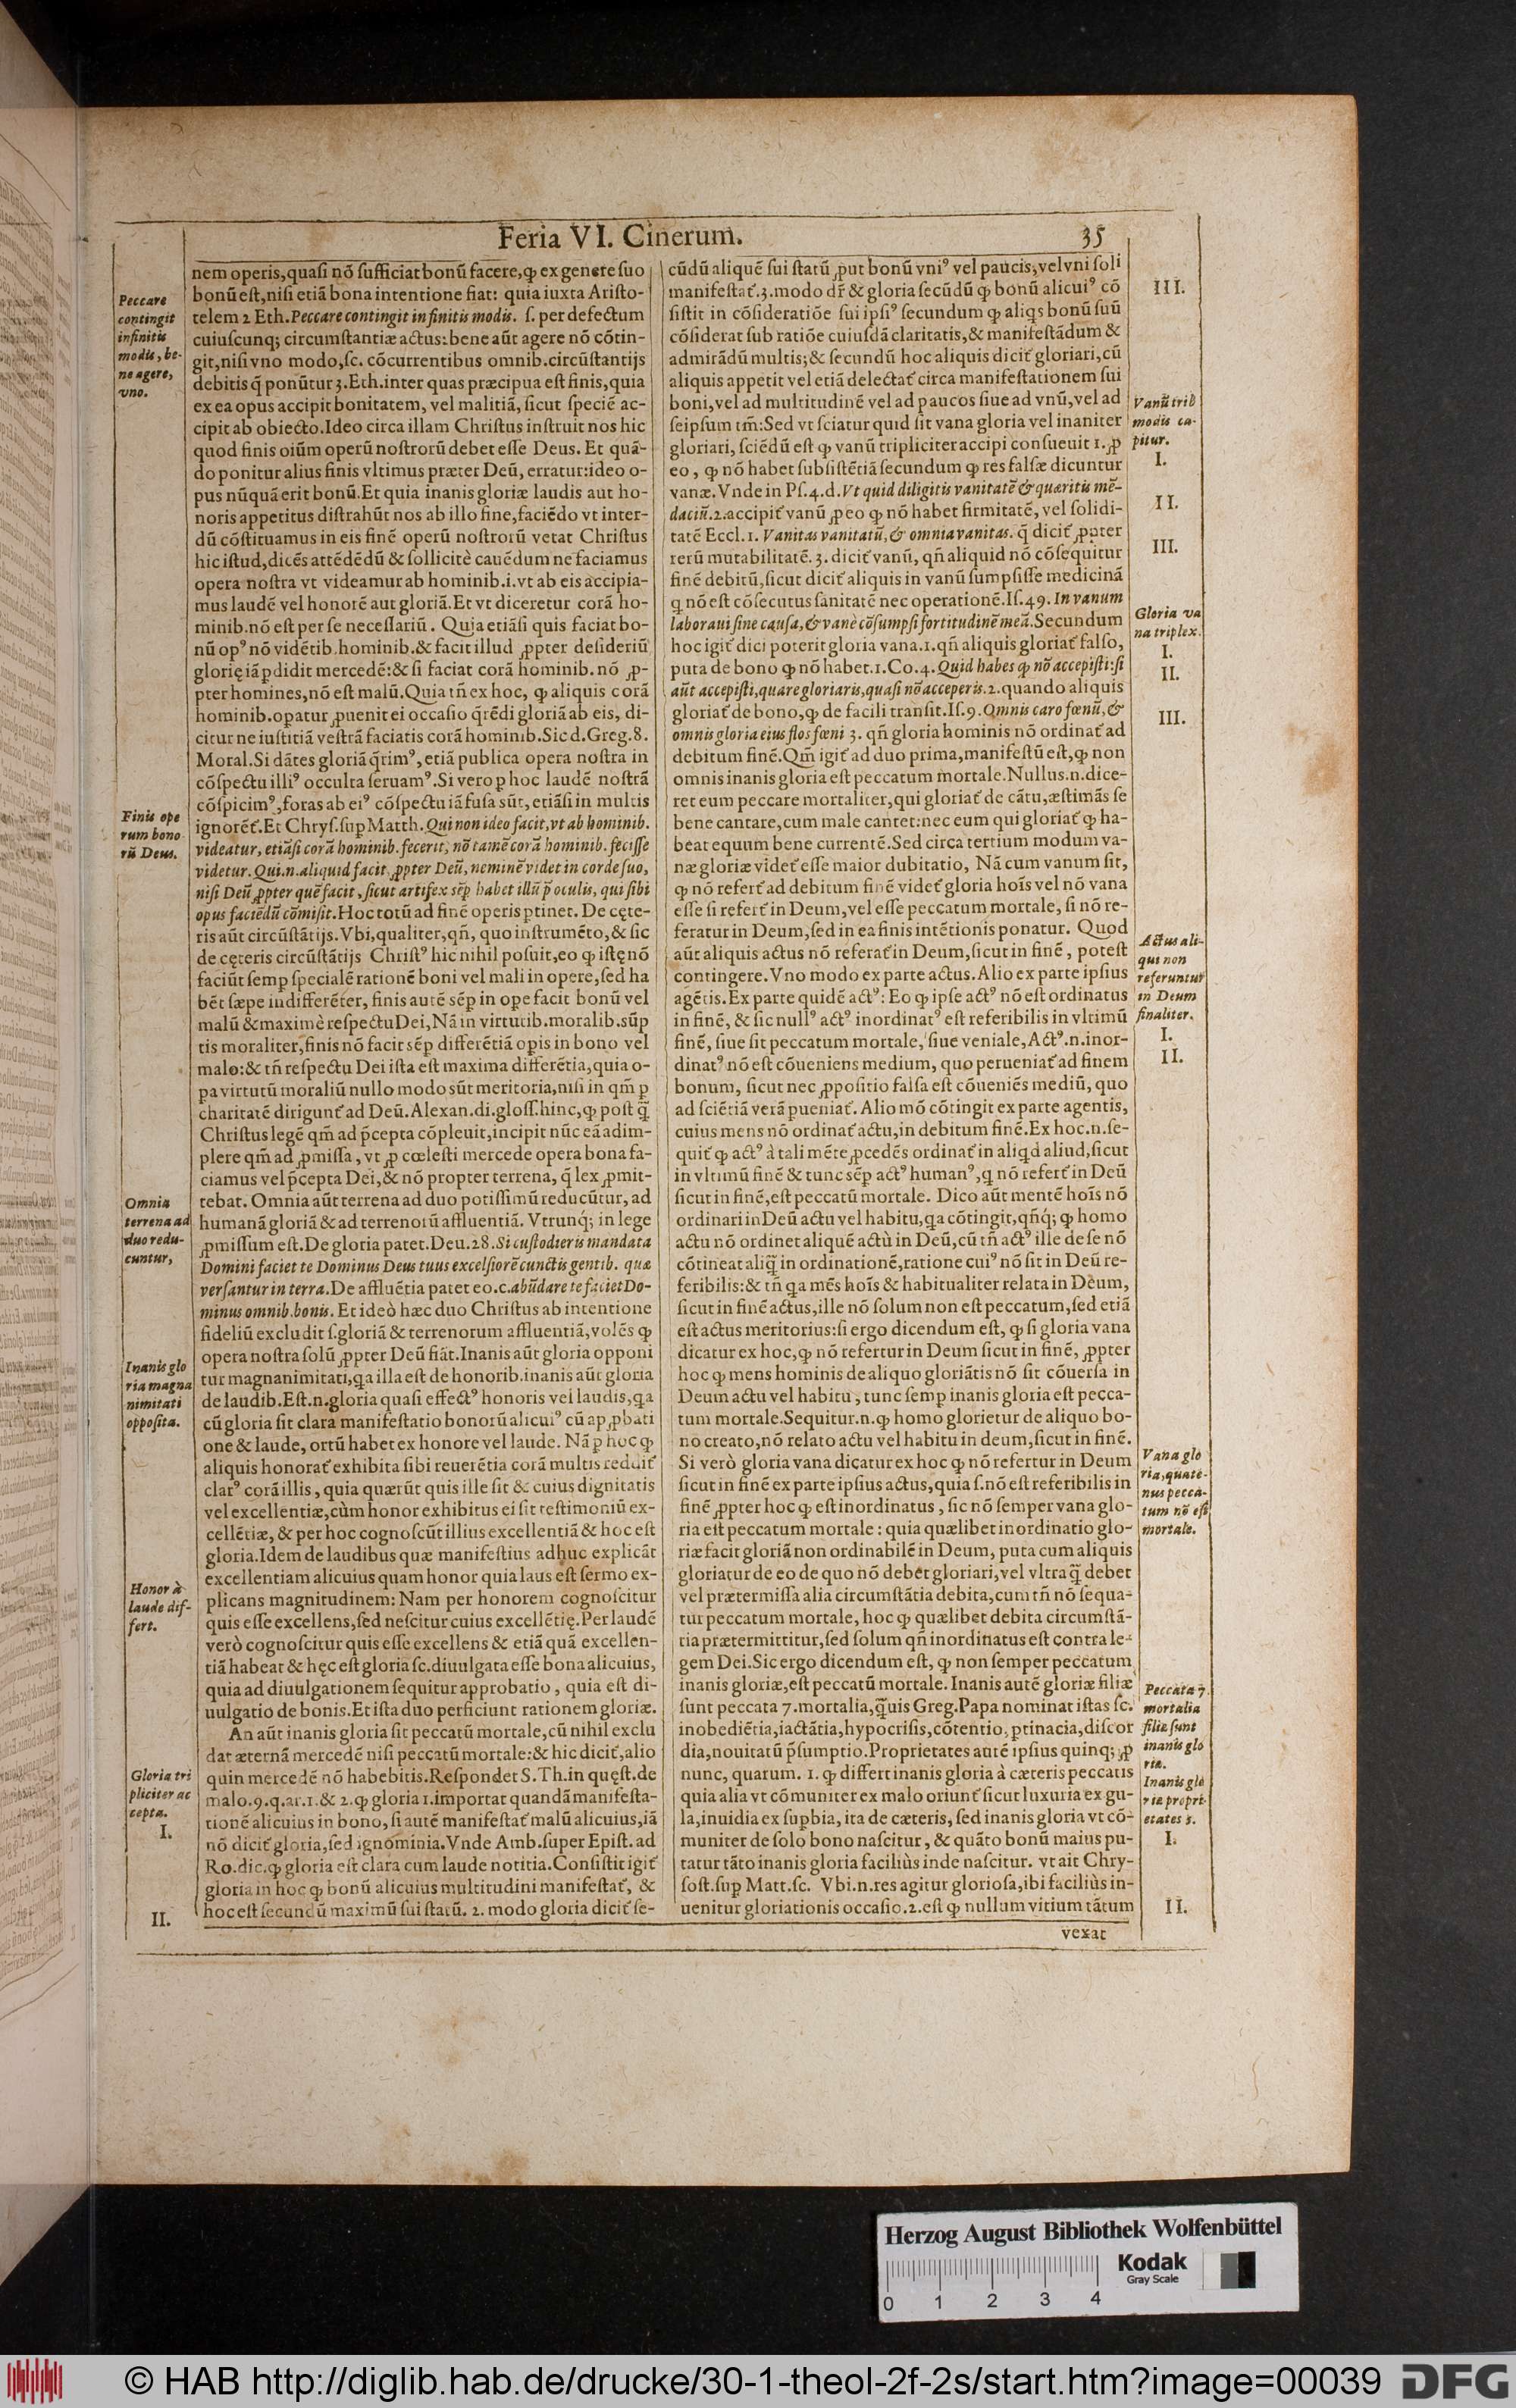 Feria VI. Cinerum. 35
nem operis,quaſi nõ ſufficiat bonũ facere,ꝙ ex genere ſuo
bonũ eſt,niſi etiã bona intentione fiat: quia iuxta Ariſto-
telem 2 Eth.Peccare contingit infinitis modis. ſ. per defectum
cuiuſcunq; circumſtantiæ actus:bene aũt agere nõ cõtin-
git,niſi vno modo,ſc. cõcurrentibus omnib.circũſtantijs
debitis q̃ ponũtur 3.Eth.inter quas præcipua eſt finis,quia
ex ea opus accipit bonitatem, vel malitiã, ſicut ſpeciẽ ac-
cipit ab obiecto.Ideo circa illam Chriſtus inſtruit nos hic
quod finis oiũm operũ noſtrorũ debet eſſe Deus. Et quã-
do ponitur alius finis vltimus præter Deũ, erratur:ideo o-
pus nũquã erit bonũ.Et quia inanis gloriæ laudis aut ho-
noris appetitus diſtrahũt nos ab illo fine,faciẽdo vt inter-
dũ cõſtituamus in eis finẽ operũ noſtrorũ vetat Chriſtus
hic iſtud,dicẽs attẽdẽdũ & ſollicitè cauẽdum ne faciamus
opera noſtra vt videamur ab hominib.i.vt ab eis accipia-
mus laudẽ vel honorẽ aut gloriã.Et vt diceretur corã ho-
minib.nõ eſt per ſe neceſſariũ . Quia etiãſi quis faciat bo-
nũ opꝰ nõ vidẽtib.hominib.& facit illud ꝓpter deſideriũ
glorię iã ꝑdidit mercedẽ:& ſi faciat corã hominib. nõ ꝓ-
pter homines,nõ eſt malũ.Quia tñ ex hoc, ꝙ aliquis corã
hominib.opatur ꝓuenit ei occaſio q̃rẽdi gloriã ab eis, di-
citur ne iuſtitiã veſtrã faciatis corã hominib.Sic d.Greg.8.
Moral.Si dãtes gloriã q̃rimꝰ,etiã publica opera noſtra in
cõſpectu illiꝰ occulta ſeruamꝰ.Si vero ꝑ hoc laudẽ noſtrã
cõſpicimꝰ,foras ab eiꝰ cõſpectu iã fuſa ſũt, etiãſi in multis
ignorẽt̃.Et Chryſ.ſup Matth.Qui non ideo facit,vt ab hominib.
videatur, etiãſi corã hominib.fecerit, nõ tamẽ corã hominib.feciſſe
videtur.Qui.n.aliquid facit ꝓpter Deũ, neminẽ videt in corde ſuo,
niſi Deũ ꝓpter quẽ facit, ſicut artifex sẽꝑ habet illũ p̃ oculis, qui ſibi
opus faciẽdũ cõmiſit.Hoc totũ ad finẽ operis ptinet. De cęte-
ris aũt circũſtãtijs. Vbi,qualiter,qñ, quo inſtrumẽto,& ſic
de cęteris circũſtãtijs Chriſtꝰ hic nihil poſuit,eo ꝙ iſtę nõ
faciũt ſemp ſpecialẽ rationẽ boni vel mali in opere,ſed ha
bẽt ſæpe indifferẽter, finis autẽ sẽp in ope facit bonũ vel
malũ & maximè reſpectu Dei,Nã in virtutib.moralib.sũp
tis moraliter,finis nõ facit sẽp differẽtiã opis in bono vel
malo:& tñ reſpectu Dei iſta eſt maxima differẽtia,quia o-
pa virtutũ moraliũ nullo modo sũt meritoria,niſi in qm̃ ꝑ
charitatẽ dirigunt̃ ad Deũ. Alexan.di.gloſſ.hinc,ꝙ poſt q̃
Chriſtus legẽ qm̃ ad p̃cepta cõpleuit,incipit nũc eã adim-
plere qm̃ ad ꝓmiſſa, vt ꝓ cœleſti mercede opera bona fa-
ciamus vel p̃cepta Dei,& nõ propter terrena, q̃ lex ꝓmit-
tebat. Omnia aũt terrena ad duo potiſſimũ reducũtur, ad
humanã gloriã & ad terrenorũ affluentiã. Vtrunq; in lege
ꝓmiſſum eſt.De gloria patet.Deu.28.Si cuſtodieris mandata
Domini faciet te Dominus Deus tuus excelſiorẽ cunctis gentib. quæ
verſantur in terra.De affluẽtia patet eo.c.abũdare te faciet Do-
minus omnib.bonis. Et ideò hæc duo Chriſtus ab intentione
fideliũ excludit ſ.gloriã & terrenorum affluentiã,volẽs ꝙ
opera noſtra ſolũ ꝓpter Deũ fiãt.Inanis aũt gloria opponi
tur magnanimitati,qa illa eſt de honorib.inanis aũt gloria
de laudib.Eſt.n.gloria quaſi effectꝰ honoris vel laudis,qa
cũ gloria ſit clara manifeſtatio bonorũ alicuiꝰ cũ apꝓbati
one & laude, ortũ habet ex honore vel laude. Nã ꝑ hoc ꝙ
aliquis honorat̃ exhibita ſibi reuerẽtia corã multis reddit̃
clarꝰ corã illis, quia quærũt quis ille ſit & cuius dignitatis
vel excellentiæ,cùm honor exhibitus ei ſit teſtimoniũ ex-
cellẽtiæ, & per hoc cognoſcũt illius excellentiã & hoc eſt
gloria.Idem de laudibus quæ manifeſtius adhuc explicãt
excellentiam alicuius quam honor quia laus eſt ſermo ex-
plicans magnitudinem: Nam per honorem cognoſcitur
quis eſſe excellens,ſed neſcitur cuius excellẽtię.Per laudẽ
verò cognoſcitur quis eſſe excellens & etiã quã excellen-
tiã habeat & hęc eſt gloria ſc.diuulgata eſſe bona alicuius,
quia ad diuulgationem ſequitur approbatio, quia eſt di-
uulgatio de bonis.Et iſta duo perficiunt rationem gloriæ.
An aũt inanis gloria ſit peccatũ mortale,cũ nihil exclu
dat æternã mercedẽ niſi peccatũ mortale:& hic dicit̃,alio
quin mercedẽ nõ habebitis.Reſpondet S.Th.in quęſt.de
malo.9.q.ar.1.& 2.ꝙ gloria 1.importat quandã manifeſta-
tionẽ alicuius in bono, ſi autẽ manifeſtat̃ malũ alicuius,iã
nõ dicit̃ gloria,ſed ignominia.Vnde Amb.ſuper Epiſt. ad
Ro.dic.ꝙ gloria eſt clara cum laude notitia.Conſiſtit igit̃
gloria in hoc ꝙ bonũ alicuius multitudini manifeſtat̃, &
hoc eſt ſecundũ maximũ ſui ſtatũ. 2. modo gloria dicit̃ ſe-
cũdũ aliquẽ ſui ſtatũ ꝓut bonũ vniꝰ vel paucis, vel vni ſoli
manifeſtat̃.3.modo dr̃ & gloria ſecũdũ ꝙ bonũ alicuiꝰ cõ
ſiſtit in cõſideratiõe ſui ipſiꝰ ſecundum ꝙ aliqs bonũ ſuũ
cõſiderat ſub ratiõe cuiuſdã claritatis,& manifeſtãdum &
admirãdũ multis;& ſecundũ hoc aliquis dicit̃ gloriari,cũ
aliquis appetit vel etiã delectat̃ circa manifeſtationem ſui
boni,vel ad multitudinẽ vel ad paucos ſiue ad vnũ,vel ad
ſeipſum tm̃:Sed vt ſciatur quid ſit vana gloria vel inaniter
gloriari, ſciẽdũ eſt ꝙ vanũ tripliciter accipi conſueuit 1. ꝓ
eo, ꝙ nõ habet ſubſiſtẽtiã ſecundum ꝙ res falſæ dicuntur
vanæ.Vnde in Pſ.4.d.Vt quid diligitis vanitatẽ & quæritis mẽ-
daciũ.2.accipit̃ vanũ ꝓ eo ꝙ nõ habet firmitatẽ, vel ſolidi-
tatẽ Eccl.1. Vanitas vanitatũ,& omnia vanitas. q̃ dicit̃ ꝓpter
rerũ mutabilitatẽ. 3. dicit̃ vanũ, qñ aliquid nõ cõſequitur
finẽ debitũ,ſicut dicit̃ aliquis in vanũ ſumpſiſſe medicinã
q nõ eſt cõſecutus ſanitatẽ nec operationẽ.Iſ.49.In vanum
laboraui ſine cauſa,& vanè cõſumpſi fortitudinẽ meã.Secundum
hoc igit̃ dici poterit gloria vana.1.qñ aliquis gloriat̃ falſo,
puta de bono ꝙ nõ habet.1.Co.4.Quid habes ꝙ nõ accepiſti:ſi
aũt accepiſti,quare gloriaris,quaſi nõ acceperis.2.quando aliquis
gloriat̃ de bono,ꝙ de facili tranſit.Iſ.9.Omnis caro fœnũ,&
omnis gloria eius flos fœni 3. qñ gloria hominis nõ ordinat̃ ad
debitum finẽ.Qm̃ igit̃ ad duo prima,manifeſtũ eſt,ꝙ non
omnis inanis gloria eſt peccatum mortale.Nullus.n.dice-
ret eum peccare mortaliter,qui gloriat̃ de cãtu,æſtimãs ſe
bene cantare,cum male cantet:nec eum qui gloriat̃ ꝙ ha-
beat equum bene currentẽ.Sed circa tertium modum va-
næ gloriæ videt̃ eſſe maior dubitatio, Nã cum vanum ſit,
ꝙ nõ refert̃ ad debitum finẽ videt̃ gloria hoĩs vel nõ vana
eſſe ſi refert̃ in Deum,vel eſſe peccatum mortale, ſi nõ re-
feratur in Deum,ſed in ea finis intẽtionis ponatur. Quod
aũt aliquis actus nõ referat̃ in Deum,ſicut in finẽ, poteſt
contingere.Vno modo ex parte actus.Alio ex parte ipſius
agẽtis.Ex parte quidẽ actꝰ: Eo ꝙ ipſe actꝰ nõ eſt ordinatus
in finẽ, & ſic nullꝰ actꝰ inordinatꝰ eſt referibilis in vltimũ
finẽ, ſiue ſit peccatum mortale, ſiue veniale,Actꝰ.n.inor-
dinatꝰ nõ eſt cõueniens medium, quo perueniat̃ ad finem
bonum, ſicut nec ꝓpoſitio falſa eſt cõueniẽs mediũ, quo
ad ſciẽtiã verã pueniat̃. Alio mõ cõtingit ex parte agentis,
cuius mens nõ ordinat̃ actu,in debitum finẽ.Ex hoc.n.ſe-
quit̃ ꝙ actꝰ à tali mẽte ꝓcedẽs ordinat̃ in aliqd aliud,ſicut
in vltimũ finẽ & tunc sẽp actꝰ humanꝰ,q nõ refert̃ in Deũ
ſicut in finẽ,eſt peccatũ mortale. Dico aũt mentẽ hoĩs nõ
ordinari in Deũ actu vel habitu,qa cõtingit,qñq; ꝙ homo
actu nõ ordinet aliquẽ actũ in Deũ,cũ tñ actꝰ ille de ſe nõ
cõtineat aliq̃ inordinationẽ,ratione cuiꝰ nõ ſit in Deũ re-
feribilis:& tñ qa mẽs hoĩs & habitualiter relata in Deum,
ſicut in finẽ actus,ille nõ ſolum non eſt peccatum,ſed etiã
eſt actus meritorius:ſi ergo dicendum eſt, ꝙ ſi gloria vana
dicatur ex hoc,ꝙ nõ refertur in Deum ſicut in finẽ, ꝓpter
hoc ꝙ mens hominis de aliquo gloriãtis nõ ſit cõuerſa in
Deum actu vel habitu, tunc ſemp inanis gloria eſt pecca-
tum mortale.Sequitur.n.ꝙ homo glorietur de aliquo bo-
no creato,nõ relato actu vel habitu in deum,ſicut in finẽ.
Si verò gloria vana dicatur ex hoc ꝙ nõ refertur in Deum
ſicut in finẽ ex parte ipſius actus,quia ſ.nõ eſt referibilis in
finẽ ꝓpter hoc ꝙ eſt inordinatus, ſic nõ ſemper vana glo-
ria eſt peccatum mortale: quia quælibet inordinatio glo-
riæ facit gloriã non ordinabilẽ in Deum, puta cum aliquis
gloriatur de eo de quo nõ debet gloriari,vel vltra q̃ debet
vel prætermiſſa alia circumſtãtia debita,cum tñ nõ ſequa-
tur peccatum mortale, hoc ꝙ quælibet debita circumſtã-
tia prætermittitur,ſed ſolum qñ inordinatus eſt contra le-
gem Dei.Sic ergo dicendum eſt, ꝙ non ſemper peccatum
inanis gloriæ,eſt peccatũ mortale. Inanis autẽ gloriæ filiæ
ſunt peccata 7.mortalia,q̃uis Greg.Papa nominat iſtas ſc.
inobediẽtia,iactãtia,hypocriſis,cõtentio, ptinacia,diſcor
dia,nouitatũ p̃ſumptio.Proprietates autẽ ipſius quinq; ꝓ
nunc, quarum. 1. ꝙ differt inanis gloria à cæteris peccatis
quia alia vt cõmuniter ex malo oriunt̃ ſicut luxuria ex gu-
la,inuidia ex ſupbia, ita de cæteris, ſed inanis gloria vt cõ-
muniter de ſolo bono naſcitur, & quãto bonũ maius pu-
tatur tãto inanis gloria faciliùs inde naſcitur. vt ait Chry-
ſoſt.ſup Matt.ſc. Vbi.n.res agitur glorioſa,ibi faciliùs in-
uenitur gloriationis occaſio.2.eſt ꝙ nullum vitium tãtum
vexat
Peccare
contingit
infinitis
modis, be-
ne agere,
vno.
Finis ope
rum bono
rũ Deus.
Omnia
terrena ad
duo redu-
cuntur,
Inanis glo
ria magna
nimitati
oppoſita.
Honor à
laude dif-
fert.
Gloria tri
pliciter ac
cepta.
I.
II.
III.
Vanũ trib
modis ca-
pitur.
I.
II.
III.
Gloria va
na triplex.
I.
II.
III.
Actus ali-
qui non
referuntur
in Deum
finaliter.
I.
II.
Vana glo
ria,quate-
nus pecca-
tum nõ eſt
mortale.
Peccata 7.
mortalia
filiæ ſunt
inanis glo
riæ.
Inanis glo
riæ propri-
etates 5.
I.
II.
Herzog August Bibliothek Wolfenbüttel
Kodak
Gray Scale
0 1 2 3 4
© HAB http://diglib.hab.de/drucke/30-1-theol-2f-2s/start.htm?image=00039 DFG